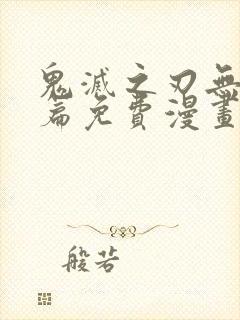 鬼滅之刃無
篇免費漫畫
般若